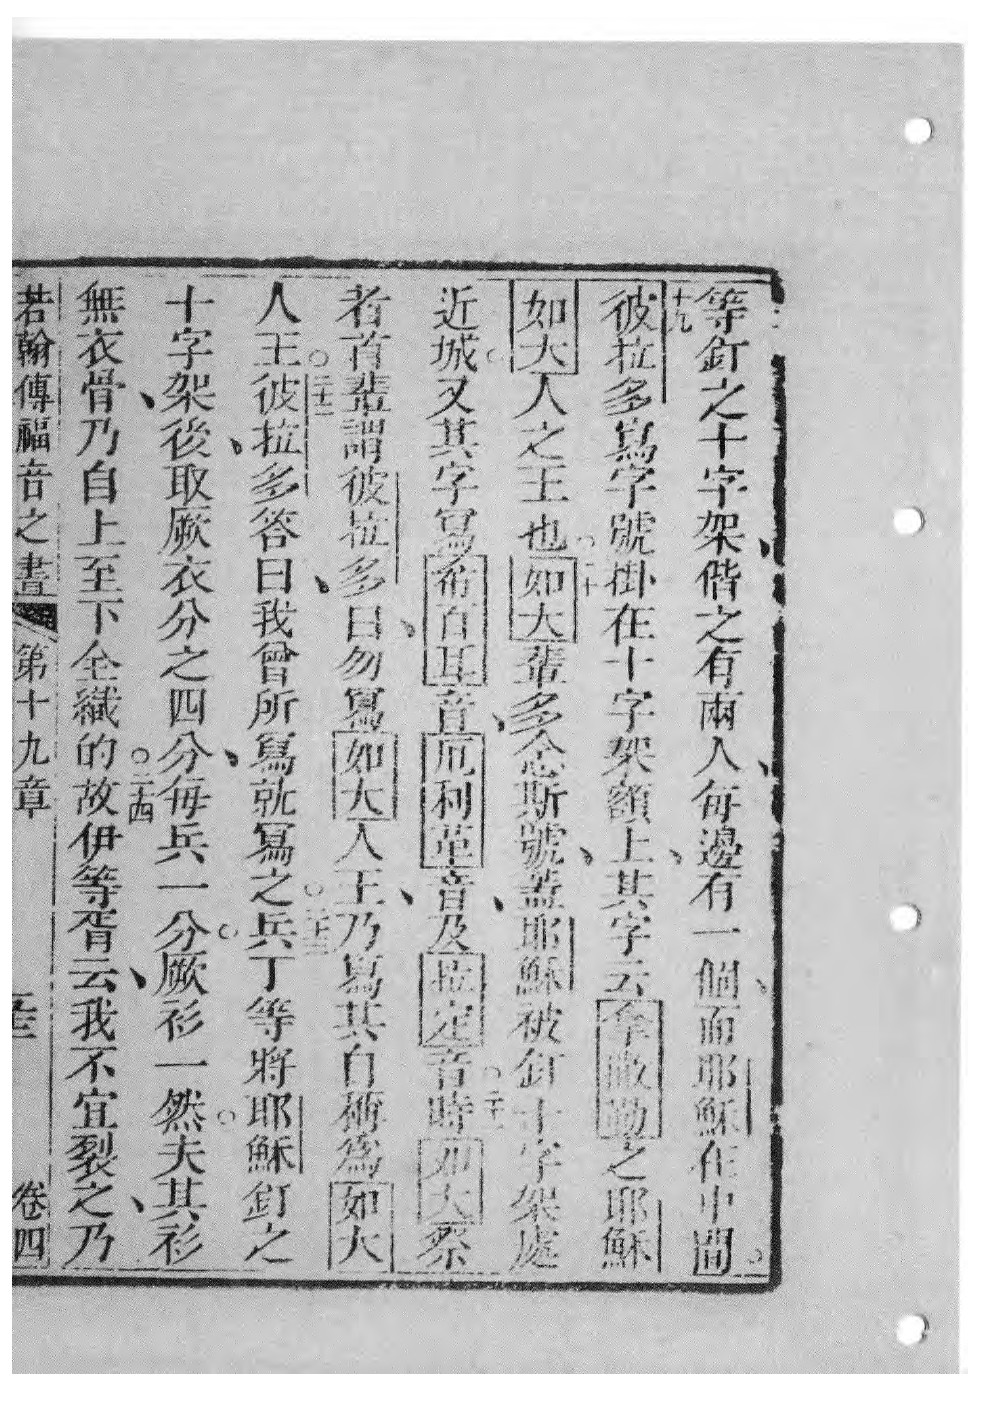 等釘之十字架、偕之有兩人、每邊有一個、而耶穌在中間。
十九彼拉多寫字號掛在十字架額上、其字云、拿㗿勒之耶穌
如大人之王也。二十如大輩多念斯號、蓋耶穌被釘十字架處
近城。又其字寫希百耳音、厄利革音、及拉定音。二十一時如大祭
者首輩謂彼拉多曰、勿寫如大人王、乃寫其自稱為如大
人王。二十二彼拉多答曰、我曾所寫就寫之。二十三兵丁等將耶穌釘之
十字架後、取厥衣分之四分、每兵一分。厥衫一然。夫其衫
無衣骨、乃自上至下全織的。二十四故伊等胥云、我不宜裂之、乃
若翰傳福音之書 第十九章 卷四